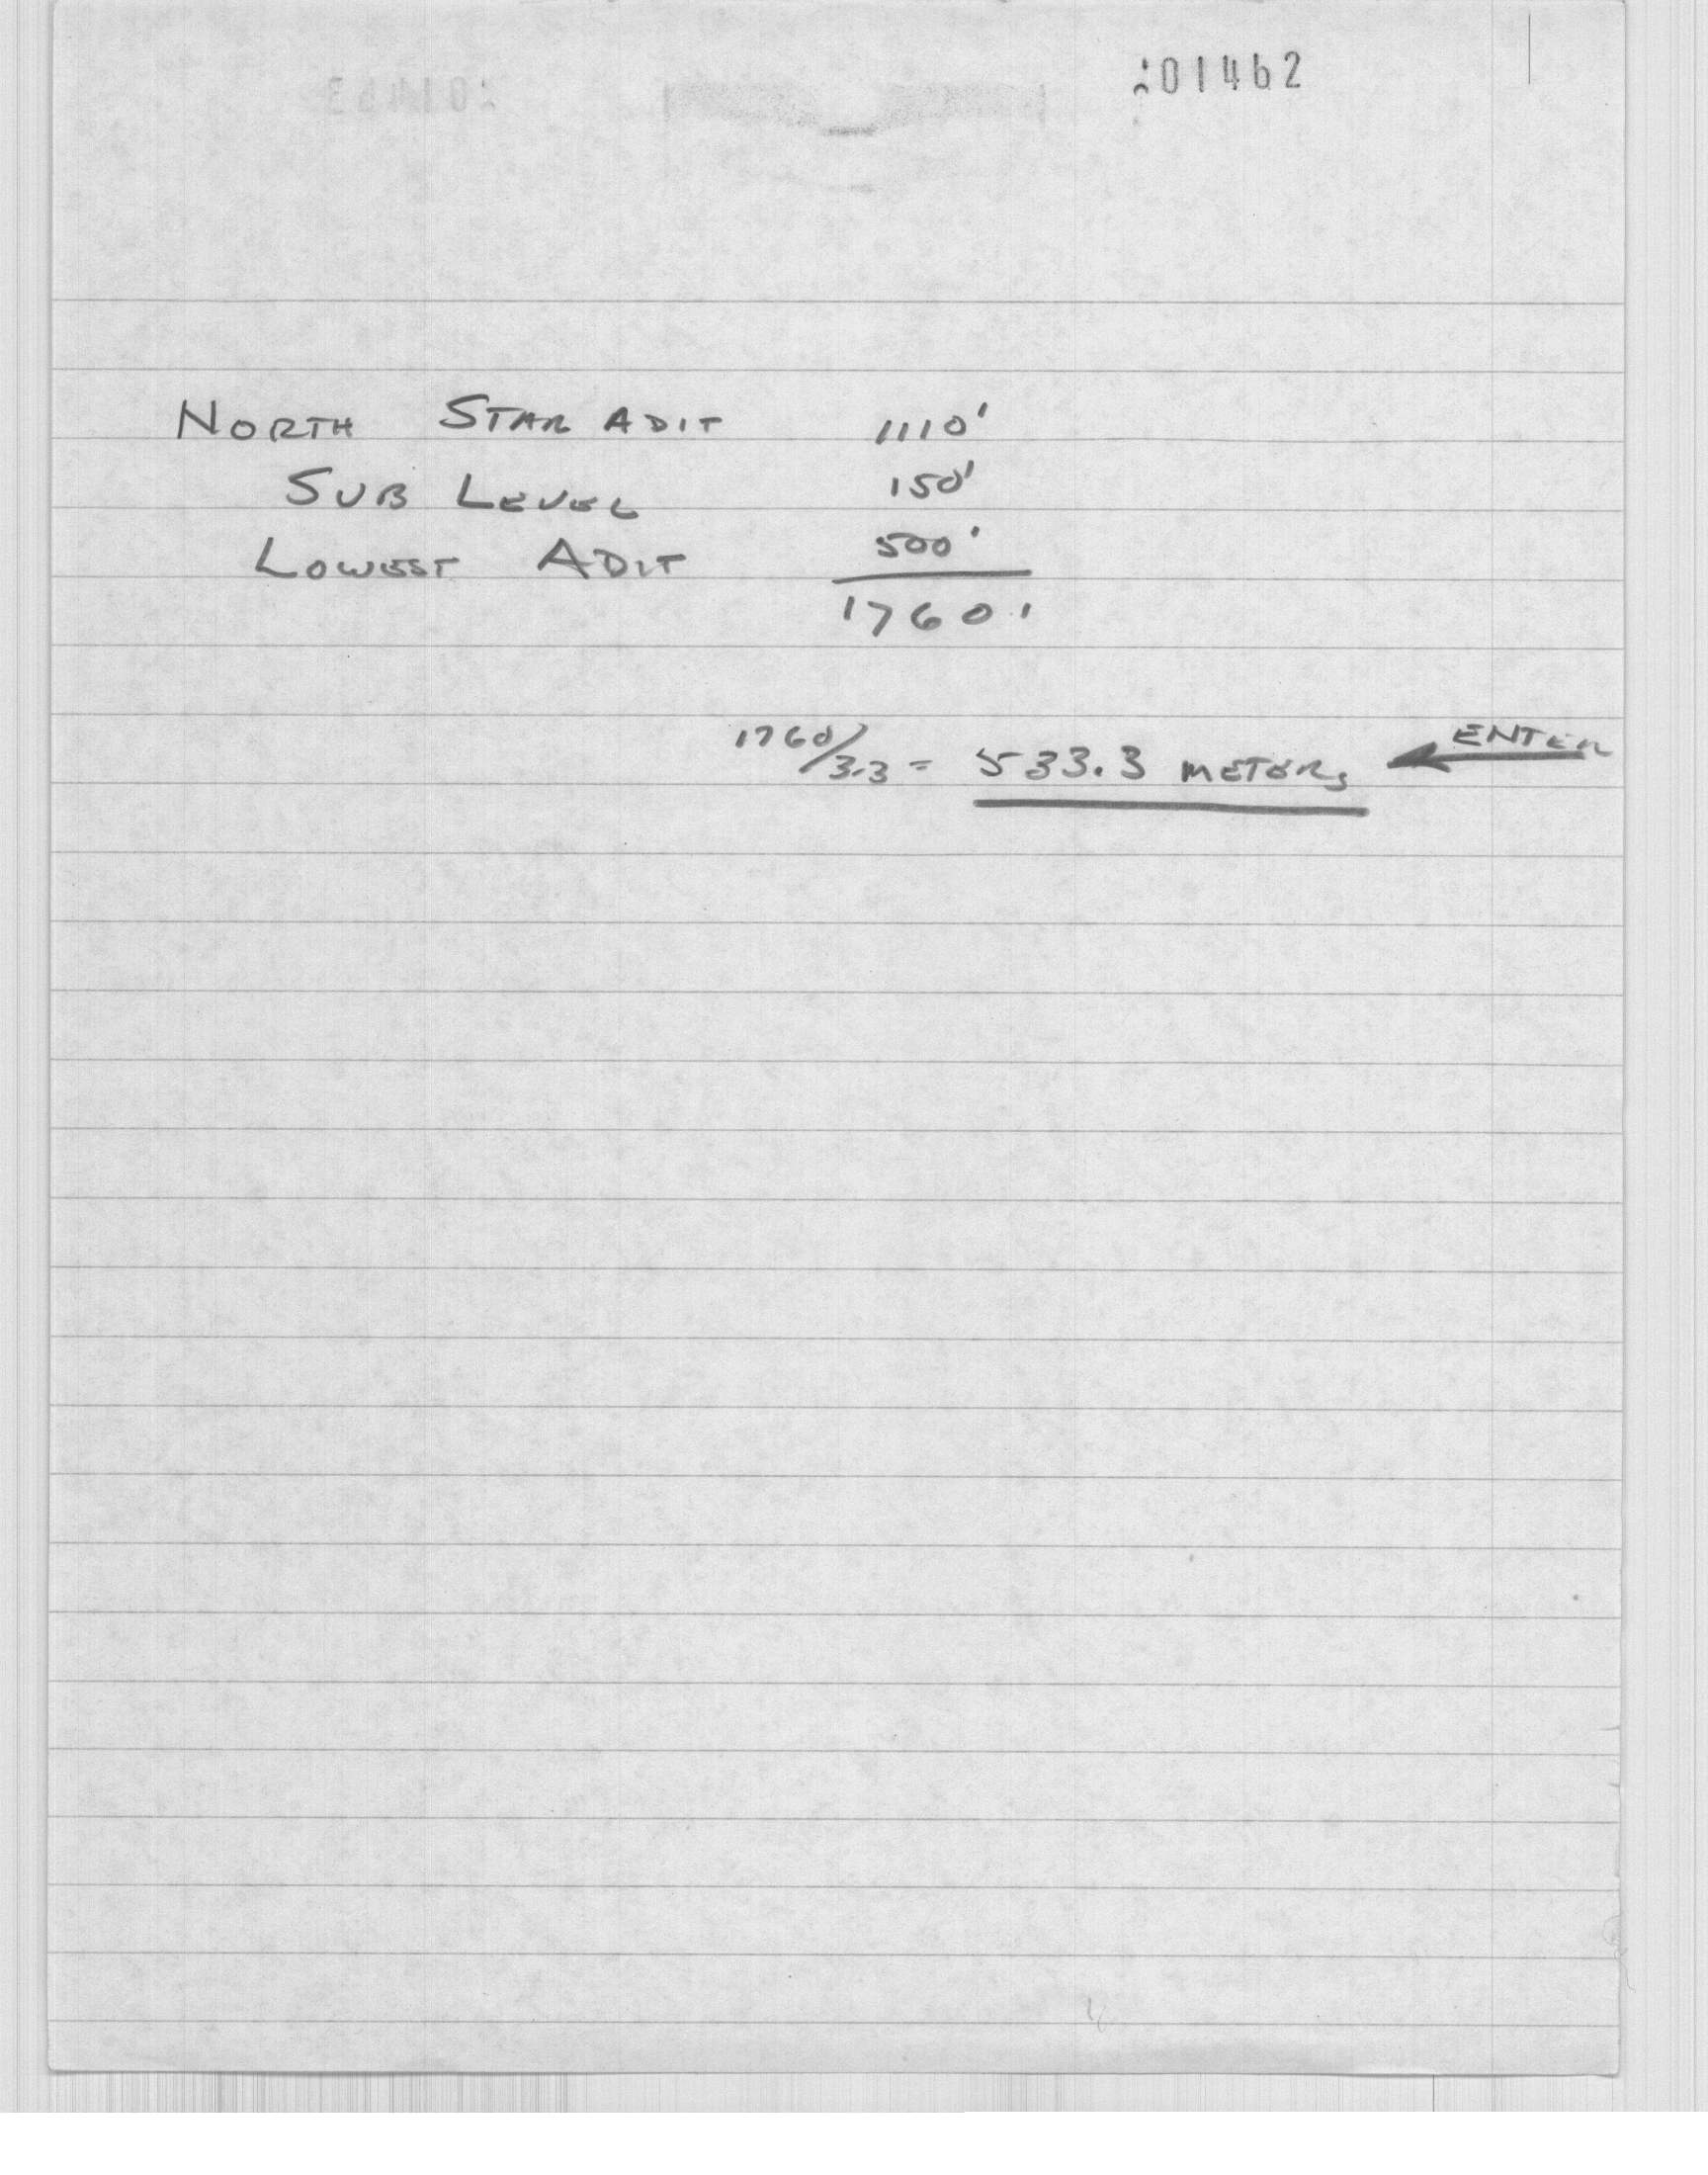 201462
NORTH STAR ADIT 1110'
SUB LEVEL 150'
LOWEST ADIT 500'
1760'
1760/3.3 = 533.3 METERS ENTER